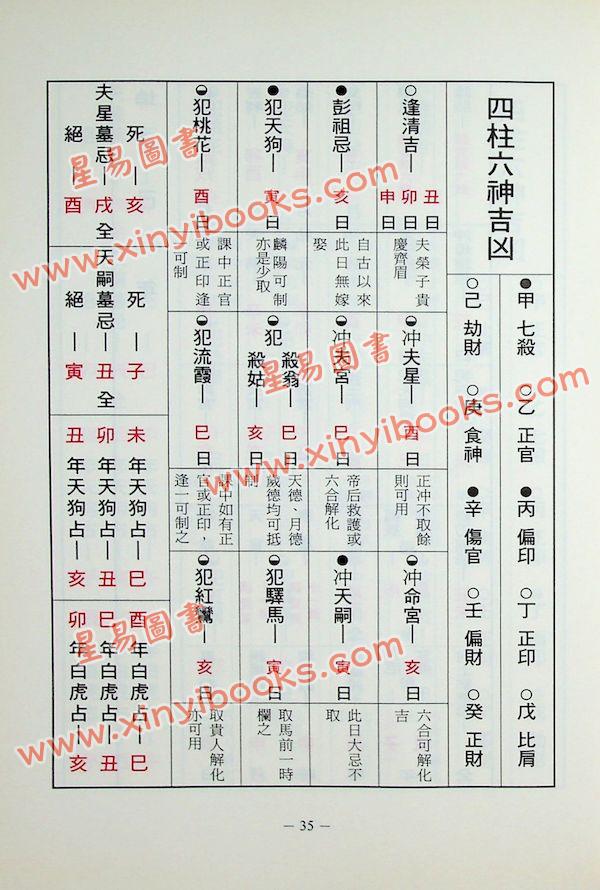 四柱六神吉凶
●甲 七殺 ○乙 正官 ●丙 偏印 ○丁 正印 ○戊 比肩
○己 劫財 ○庚 食神 ●辛 傷官 ○壬 偏財 ○癸 正財
○逢清吉—丑日 卯日 申日
夫榮子貴
慶齊眉
●彭祖忌—亥日
自古以來
此日無嫁
娶
●犯天狗—寅日
麟陽可制
亦是少取
犯桃花—酉日
課中正官
或正印逢
可制
冲夫星—酉日
正冲不取餘
則可用
冲夫宮—巳日
帝后救護或
六合解化
犯 殺翁—巳日
殺姑—亥日
天德、月德
歲德均可抵
制
犯流霞—巳日
課中如有正
官或正印，
逢一可制之
冲命宮—亥日
六合可解化
吉
●冲天嗣—寅日
此日大忌不
取
犯驛馬—寅日
取馬前一時
欄之
犯紅鸞—亥日
取貴人解化
亦可用
死—亥
夫星墓忌—戌全
絕—酉
死—子
天嗣墓忌—丑全
絕—寅
未年天狗占—巳
卯年天狗占—丑
丑年天狗占—亥
酉年白虎占—巳
巳年白虎占—丑
卯年白虎占—亥
— 35 —
星易圖書
www.xinyibooks.com
星易圖書
www.xinyibooks.com
星易圖書
www.xinyibooks.com